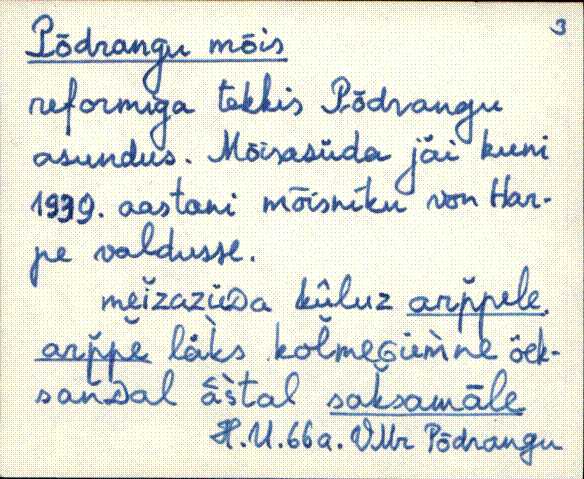 3
Põdrangu mõis
reformiga tekkis Põdrangu
asundus. Mõisasüda jäi kuni
1939. aastani mõisniku von Har-
pe valdusse.
meĭzazüᴅa kûluz arp̆pele.
arp̆pĕ läks kol̆meɢiem̀ne ȫek-
sanᴅal ǟs̀tal saksamāle
H. U. 66 a. VMr Põdrangu